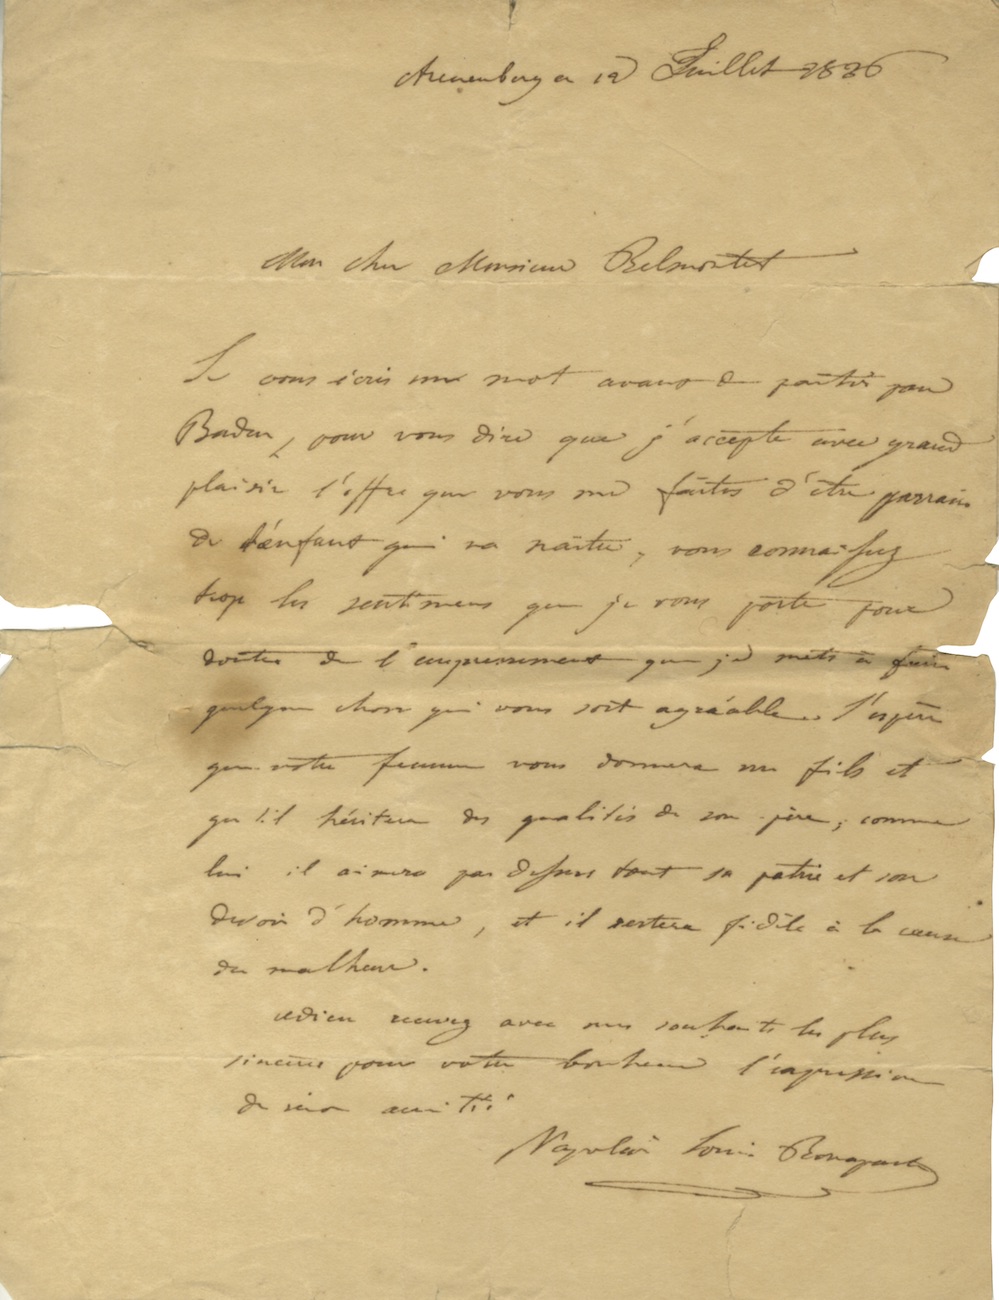 Arenenberg ce 12 Juillet 1836
Mon cher Monsieur Belmontet
Je vous écris un mot avant de partir pour
Baden, pour vous dire que j'accepte avec grand
plaisir l'offre que vous me faites d'être parrain
de l'enfant qui va naître, vous connaissez
trop les sentimens que je vous porte pour
douter de l'empressement que je mets à faire
quelque chose qui vous soit agréable. J'espère
que votre femme vous donnera un fils et
qu'il héritera des qualités de son père; comme
lui il aimera par dessus tout sa patrie et son
devoir d'homme, et il restera fidèle à la cause
du malheur.
adieu recevez avec mes souhaits les plus
sincères pour votre bonheur l'expression
de mon amitié
Napoléon Louis Bonaparte